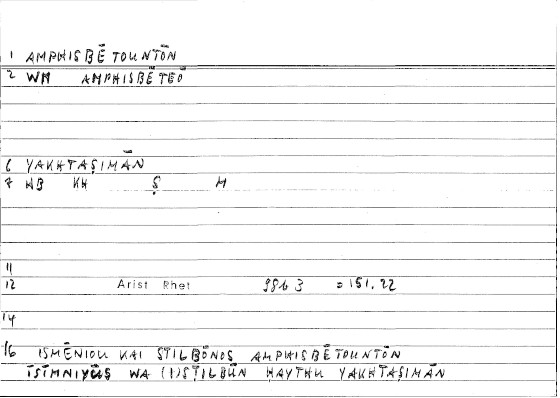 1 AMPHISBĒTOUNTŌN
2 WM AMPHISBĒTEŌ
6 YAKHTAṢIMĀN
7 WB KH Ṣ M
11
12 Arist Rhet 98b 3 = 151.22
14
16 ISMĒNIOU KAI STILBŌNOS AMPHISBĒTOUNTŌN
ISIMNIYŪS WA (I)SṬILBŪN ḤAYTHU YAKHTAṢIMĀN